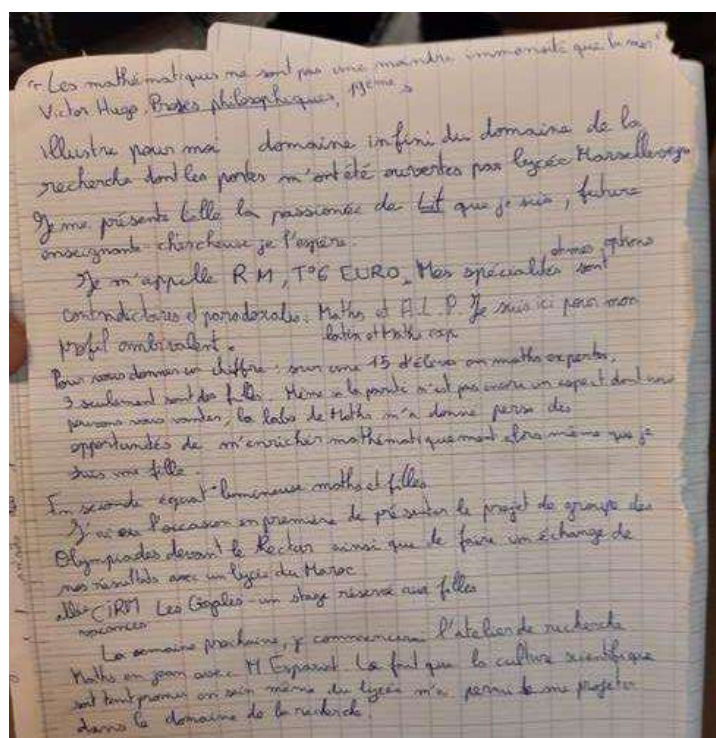 "Les mathématiques ne sont pas une moindre immensité que la mer"
Victor Hugo, Proses philosophiques, 19ème s
illustre pour moi domaine infini du domaine de la
recherche dont les portes m'ont été ouvertes par lycée Marseilleveyre
Je me présente telle la passionée de Lit que je suis, future
enseignante-chercheuse je l'espère.
et mes options
Je m'appelle RM, T°6 EURO. Mes spécialités sont
contradictoires et paradoxales : Maths et H.L.P. Je suis ici pour mon
latin et Maths exp
profil ambivalent.
Pour vous donner un chiffre : sur une 15 d'élèves en maths expertes,
3 seulement sont des filles. Même si la parité n'est pas encore un aspect dont nous
pouvons nous vanter, le labo de Maths m'a donné perso des
opportunités de m'enrichir mathématiquement alors même que je
suis une fille.
En seconde équat° lumineuse maths et filles
J'ai eu l'occasion en première de présenter le projet de groupe des
Olympiades devant le Recteur ainsi que de faire un échange de
nos résultats avec un lycée du Maroc
CiRM Les Cigales - un stage réservé aux filles
vacances
La semaine prochaine, je commencerai l'atelier de recherche
Maths en jean avec M Esparat. Le fait que la culture scientifique
soit tant promue au sein même du lycée m'a permis de me projeter
dans le domaine de la recherche.